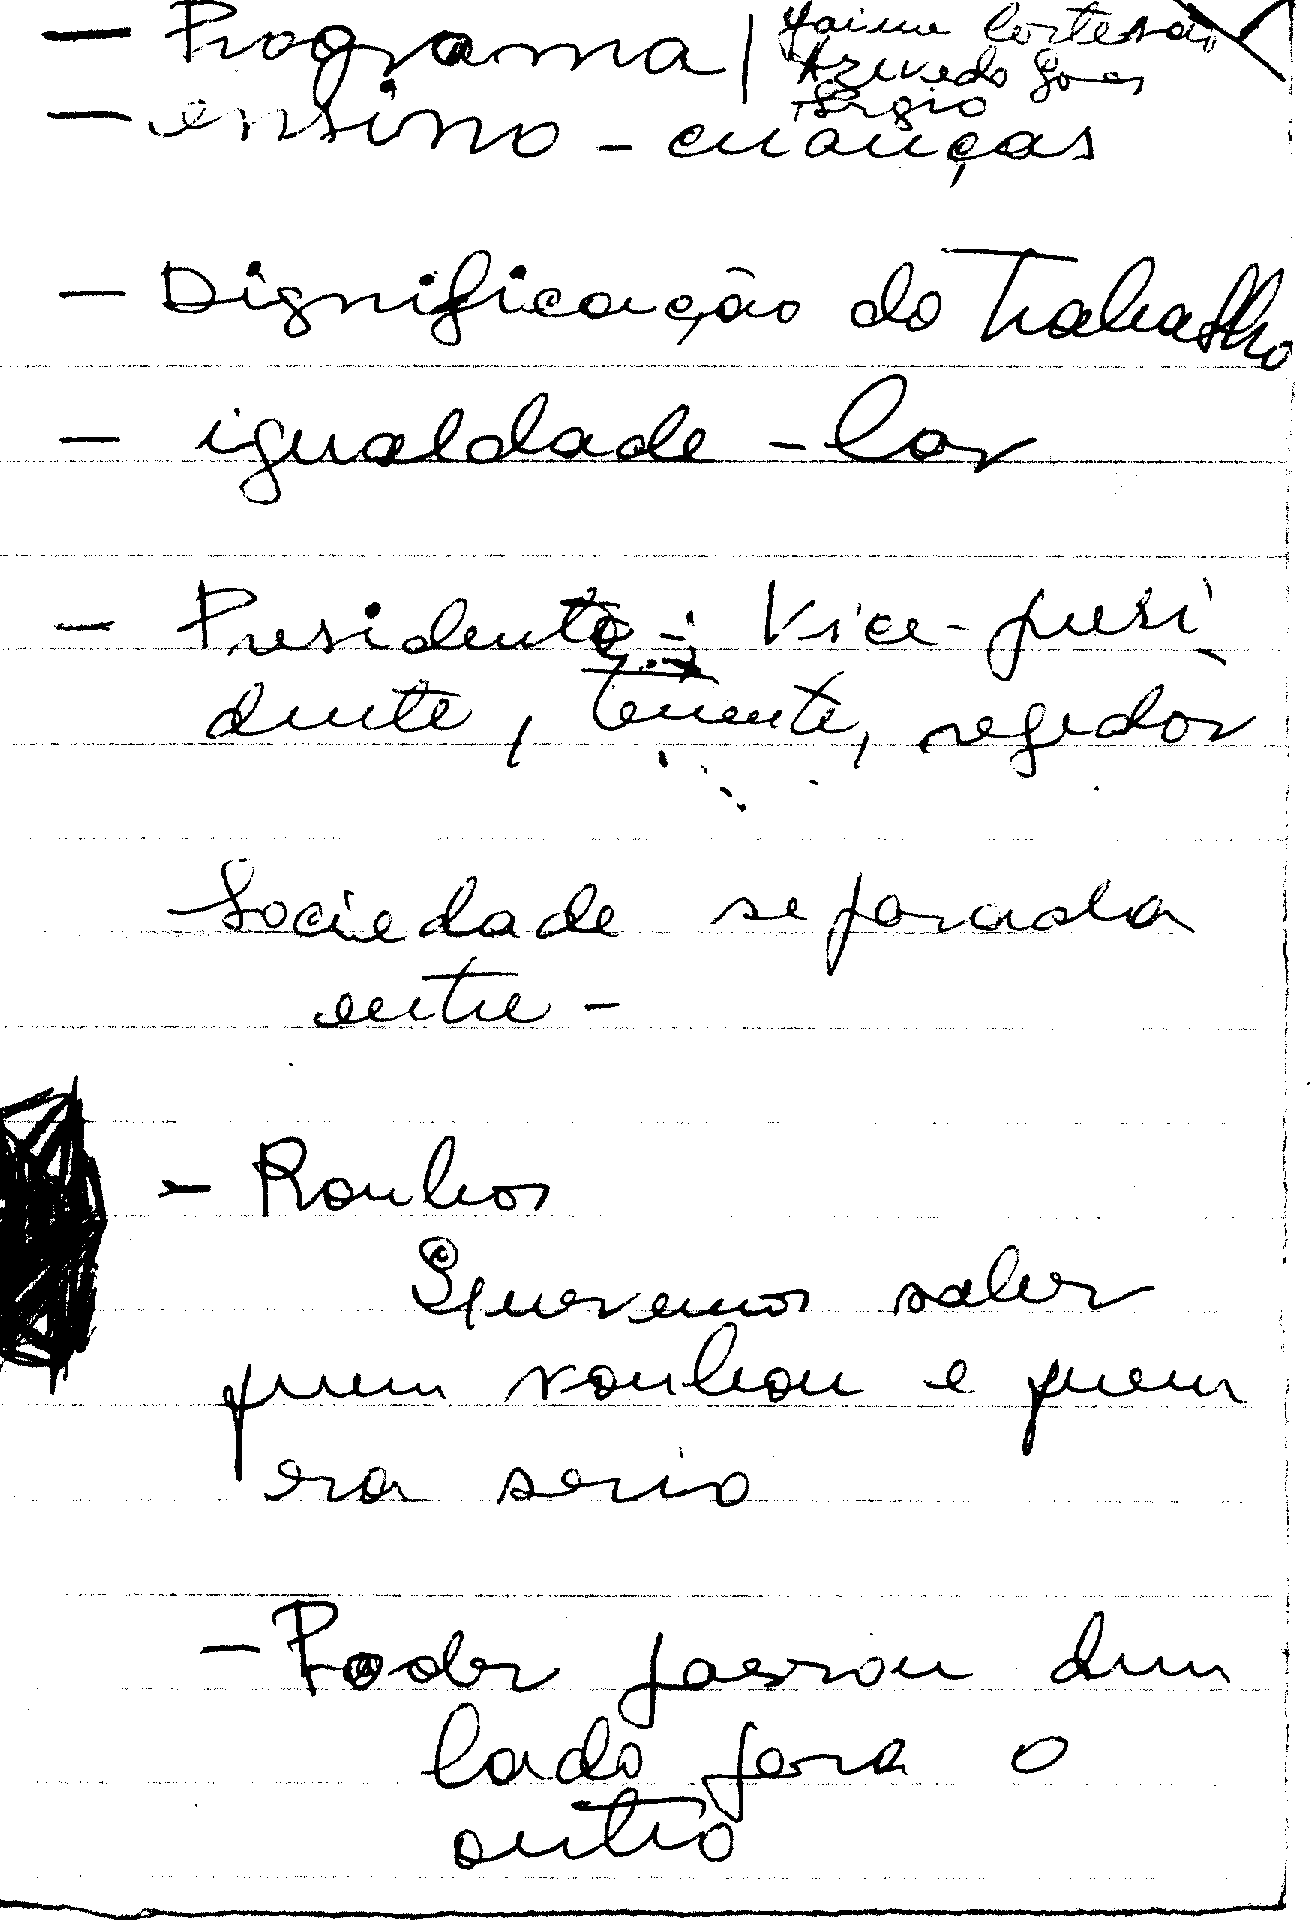 — Programa | Jaime Cortesão
Azevedo Gomes
Sérgio
— ensino - crianças
— Dignificação do Trabalho
— igualdade - lar
— Presidente; Vice-presi-
dente, tenente, regedor
Sociedade separada
entre -
- Roubos
Queremos saber
quem roubou e quem
era serio
- Poder passou dum
lado para o
outro